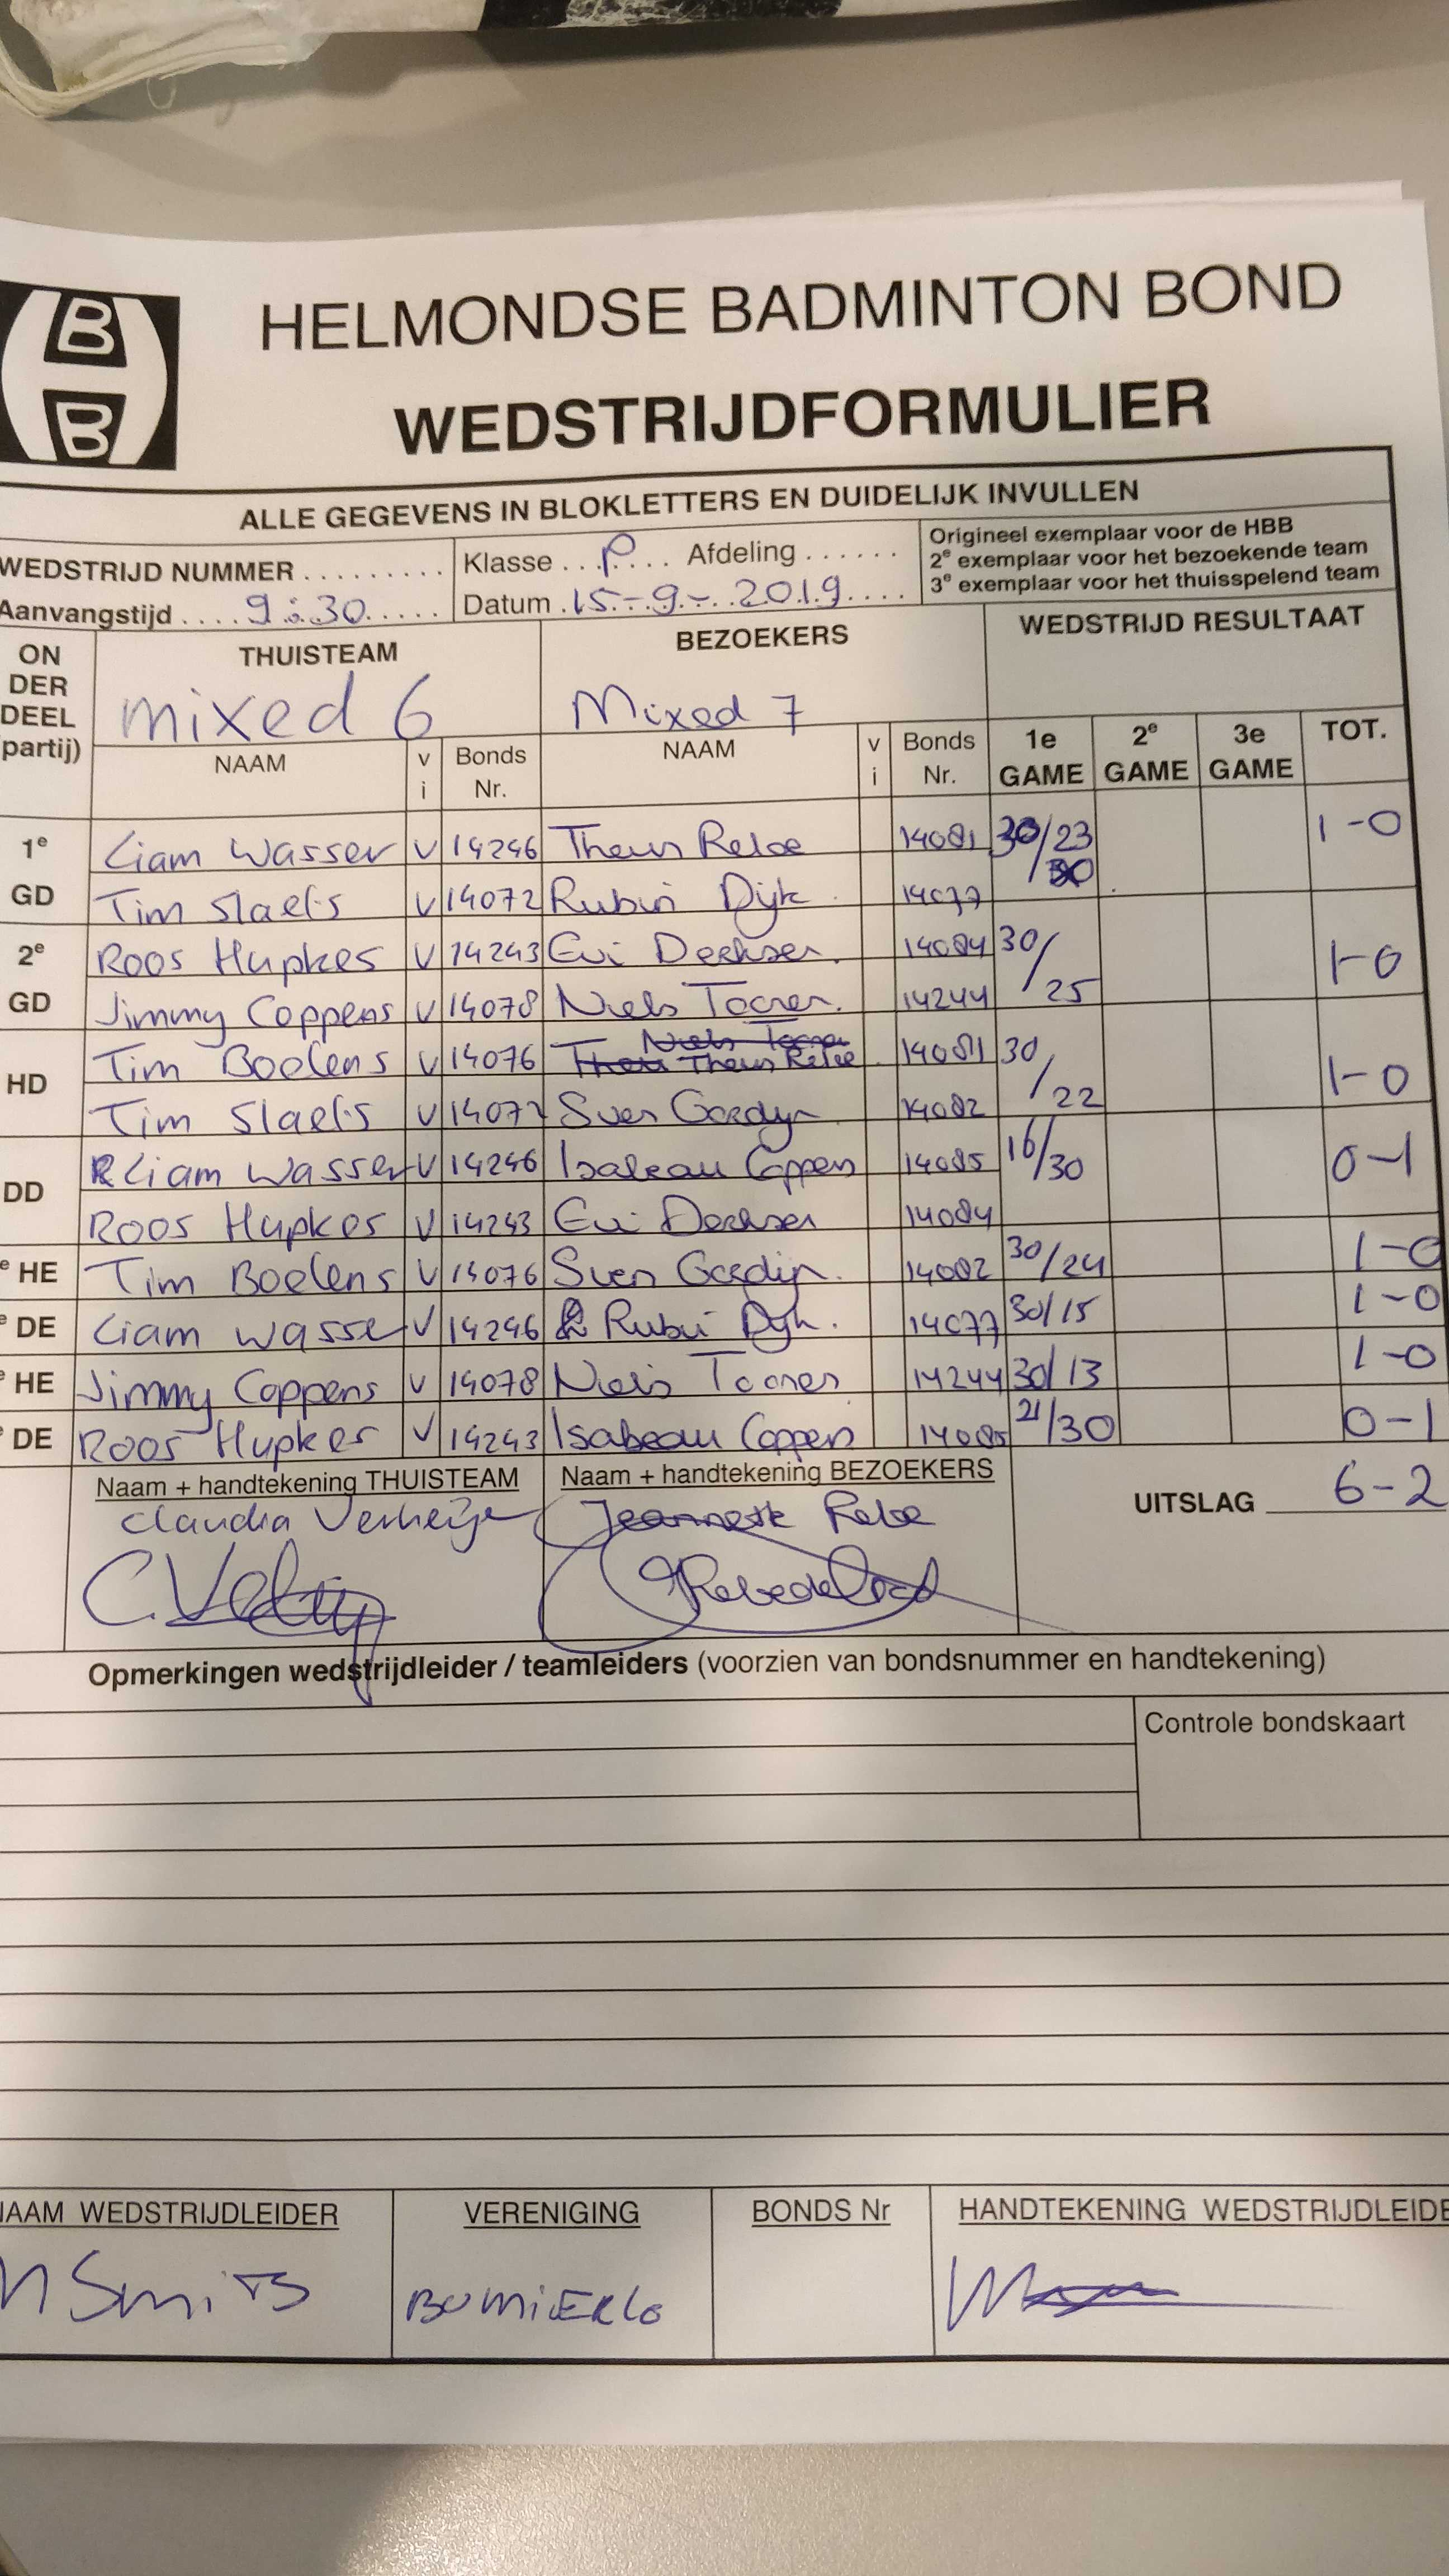 B
B
HELMONDSE BADMINTON BOND
WEDSTRIJDFORMULIER
ALLE GEGEVENS IN BLOKLETTERS EN DUIDELIJK INVULLEN
WEDSTRIJD NUMMER ......... Klasse ...P.... Afdeling ......
Origineel exemplaar voor de HBB
2e exemplaar voor het bezoekende team
3e exemplaar voor het thuisspelend team
Aanvangstijd ....9:30..... Datum .15-9-2019....
ON DER DEEL partij) THUISTEAM BEZOEKERS WEDSTRIJD RESULTAAT
mixed 6 Mixed 7
NAAM vi Bonds Nr. NAAM vi Bonds Nr. 1e GAME 2e GAME 3e GAME TOT.
1e Liam Wasser V 14246 Theun Reloe 14081 30/23 1-0
GD Tim Slaets V 14072 Rubin Dijk 14077
2e Roos Hupkes V 14243 Evi Derksen 14084 30/25 1-0
GD Jimmy Coppens V 14078 Niels Toonen 14244
HD Tim Boelens V 14076 Theun Reloe 14081 30/22 1-0
Tim Slaets V 14072 Sven Gordijn 14082
DD Liam Wasser V 14246 Isabeau Coppens 14085 16/30 0-1
Roos Hupkes V 14243 Evi Derksen 14084
e HE Tim Boelens V 14076 Sven Gordijn 14082 30/24 1-0
e DE Liam Wasser V 14246 Rubin Dijk 14077 30/15 1-0
e HE Jimmy Coppens V 14078 Niels Toonen 14244 30/13 1-0
e DE Roos Hupkes V 14243 Isabeau Coppens 14085 21/30 0-1
Naam + handtekening THUISTEAM Naam + handtekening BEZOEKERS
UITSLAG 6-2
Claudia Verheijen Jeannette Rebe
Opmerkingen wedstrijdleider / teamleiders (voorzien van bondsnummer en handtekening)
Controle bondskaart
NAAM WEDSTRIJDLEIDER VERENIGING BONDS Nr HANDTEKENING WEDSTRIJDLEIDE
Smits BCMIERLO